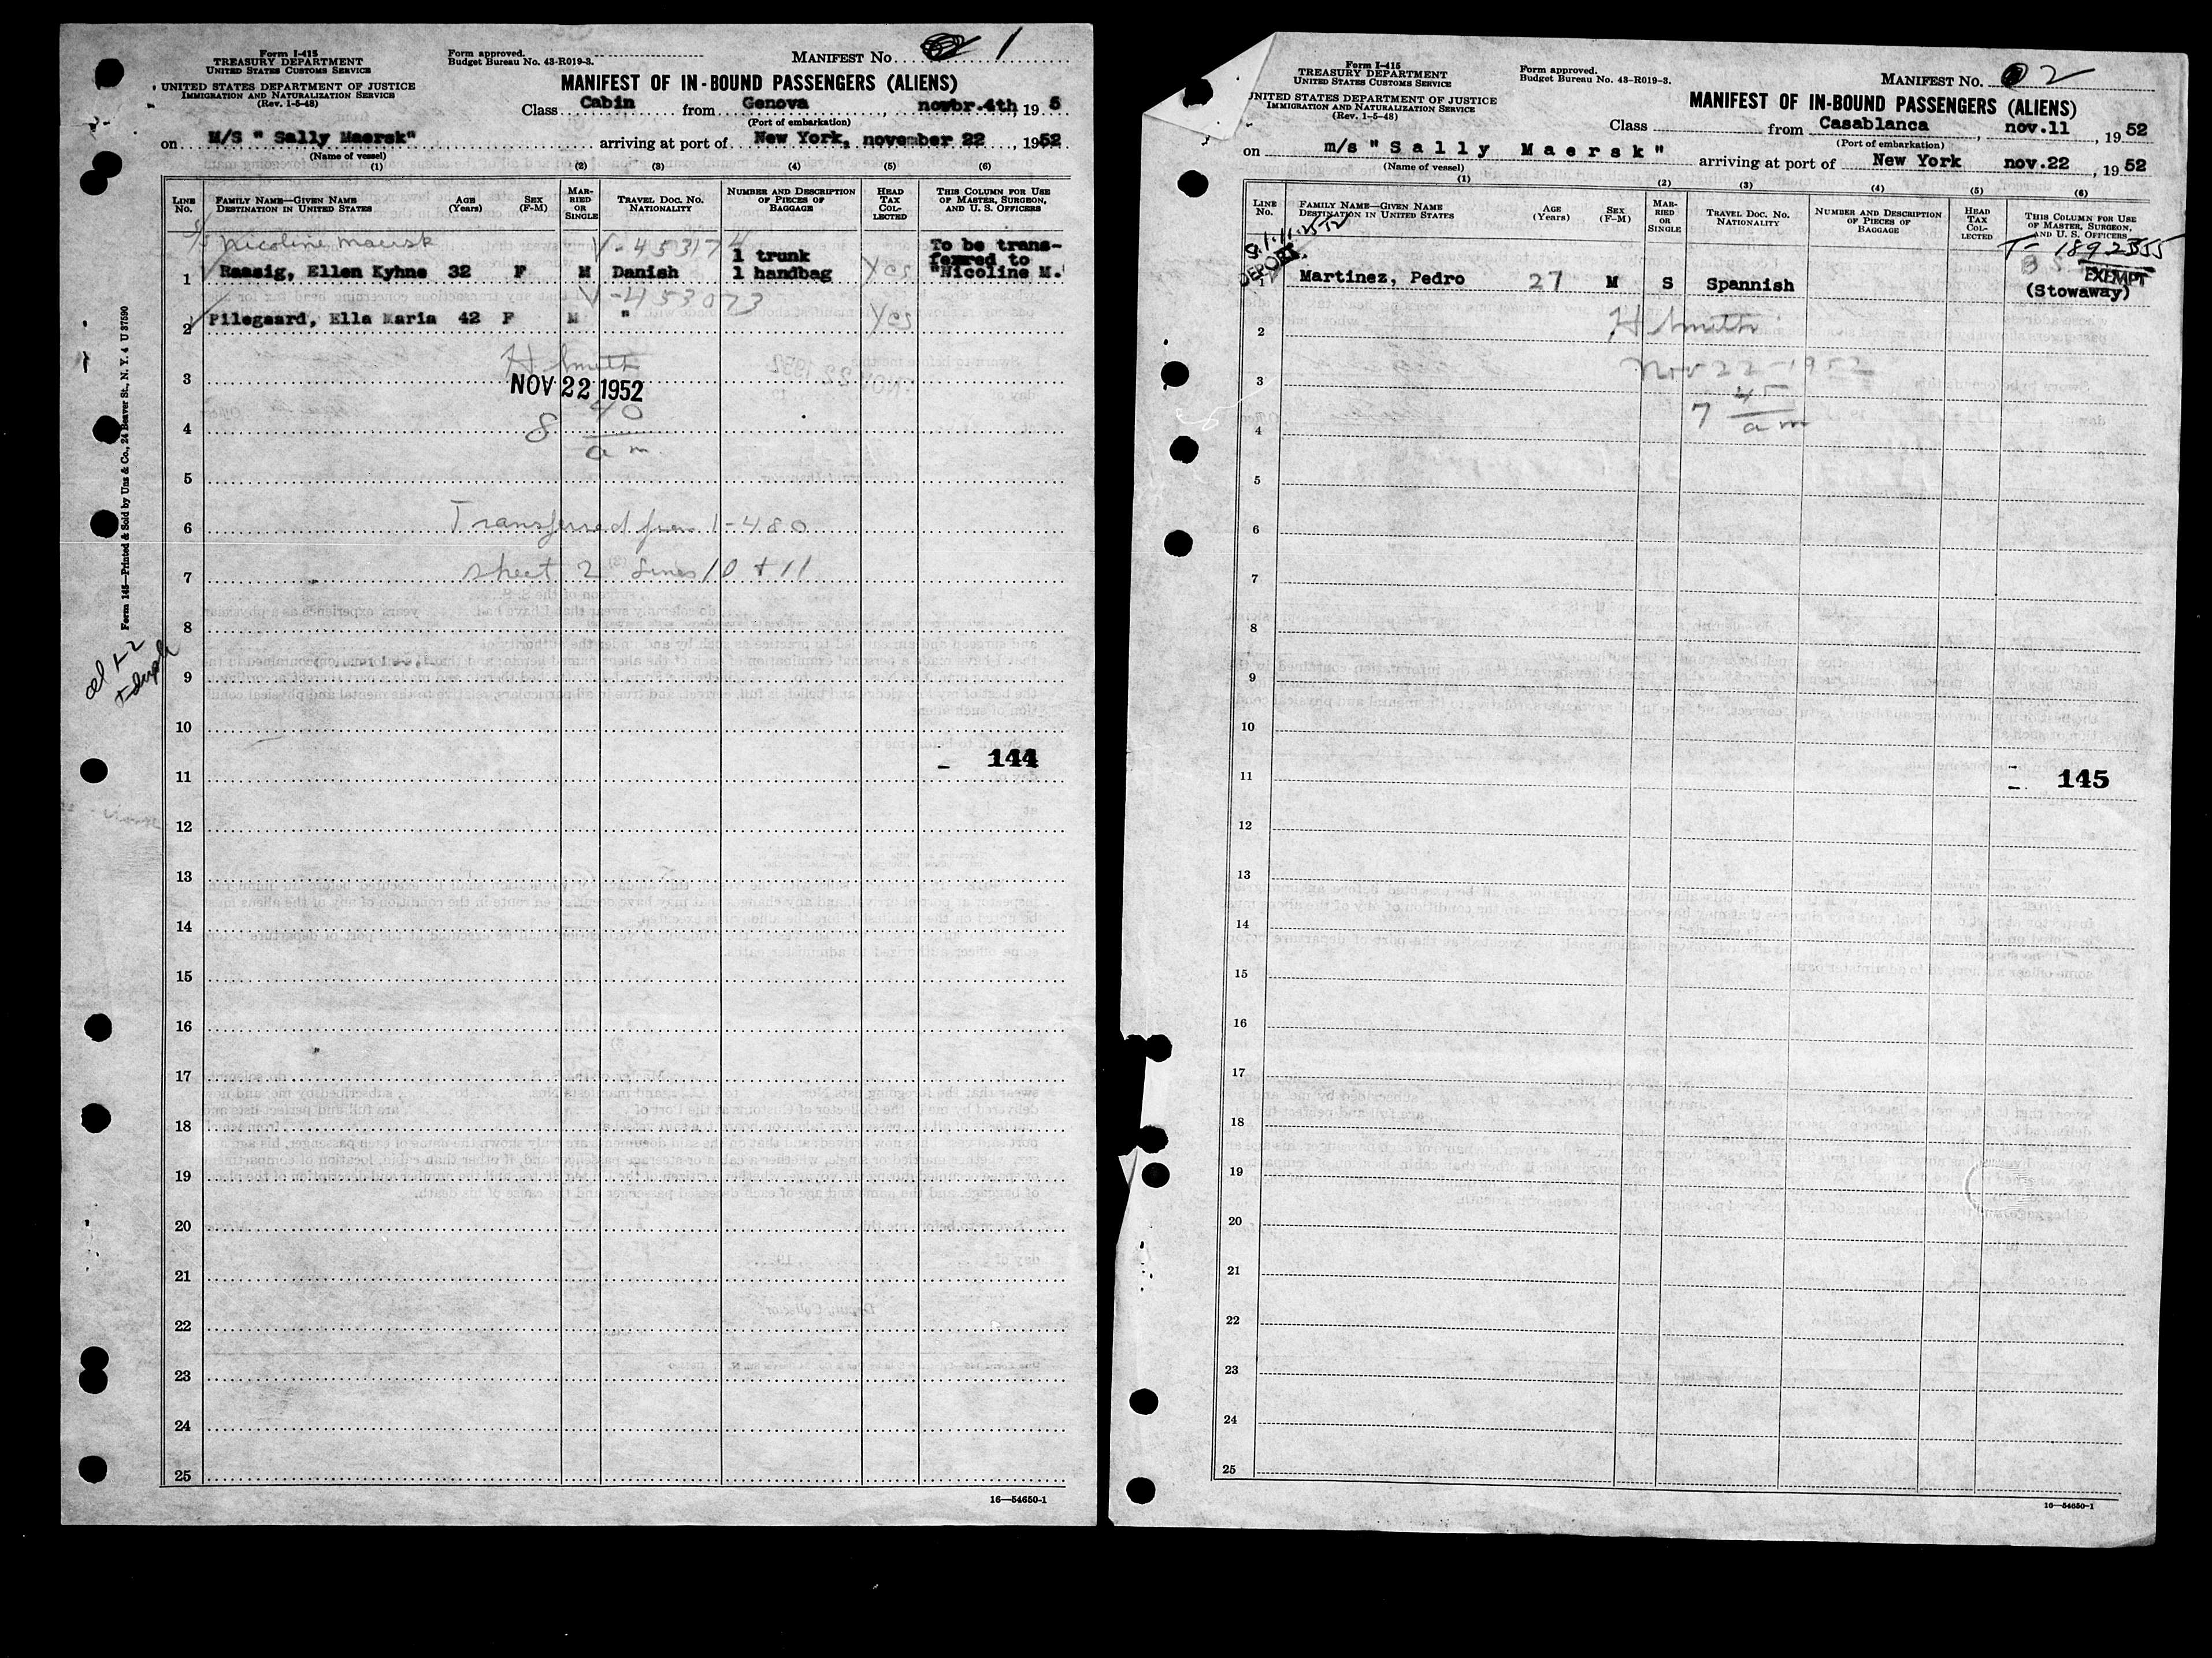 Form I-415
TREASURY DEPARTMENT
UNITED STATES CUSTOMS SERVICE
UNITED STATES DEPARTMENT OF JUSTICE
IMMIGRATION AND NATURALIZATION SERVICE
(Rev. 1-5-48)
Form approved.
Budget Bureau No. 43-R019-3.
MANIFEST No. 1
MANIFEST OF IN-BOUND PASSENGERS (ALIENS)
Class Cabin from Genova, novbr.4th, 19 5
(Port of embarkation)
on M/S " Sally Maersk" arriving at port of New York, november 22, 1952
(Name of vessel)
(1) (2) (3) (4) (5) (6)
LINE No. FAMILY NAME—GIVEN NAME DESTINATION IN UNITED STATES AGE (Years) SEX (F-M) MARRIED OR SINGLE TRAVEL DOC. NO. NATIONALITY NUMBER AND DESCRIPTION OF PIECES OF BAGGAGE HEAD TAX COLLECTED THIS COLUMN FOR USE OF MASTER, SURGEON, AND U. S. OFFICERS
Nicoline Maersk V-453174 1 trunk To be transferred to
1 Raasig, Ellen Kyhne 32 F M Danish 1 handbag Yes "Nicoline M."
V-453073
2 Pilegaard, Ella Maria 42 F M " Yes
H Smith
3 NOV 22 1952
4 8 40 am
5
6 Transferred from I-480
7 sheet 2 lines 10 + 11
8
9
10
144
11
12
13
14
15
16
17
18
19
20
21
22
23
24
25
16—54650-1
Form 145—Printed & Sold by Unz & Co., 24 Beaver St., N. Y. 4 U 37590
Form I-415
TREASURY DEPARTMENT
UNITED STATES CUSTOMS SERVICE
UNITED STATES DEPARTMENT OF JUSTICE
IMMIGRATION AND NATURALIZATION SERVICE
(Rev. 1-5-48)
Form approved.
Budget Bureau No. 43-R019-3.
MANIFEST No. 2
MANIFEST OF IN-BOUND PASSENGERS (ALIENS)
Class from Casablanca, nov.11, 19 52
(Port of embarkation)
on m/s " S a l l y M a e r s k " arriving at port of New York nov.22, 19 52
(Name of vessel)
(1) (2) (3) (4) (5) (6)
LINE No. FAMILY NAME—GIVEN NAME DESTINATION IN UNITED STATES AGE (Years) SEX (F-M) MARRIED OR SINGLE TRAVEL DOC. NO. NATIONALITY NUMBER AND DESCRIPTION OF PIECES OF BAGGAGE HEAD TAX COLLECTED THIS COLUMN FOR USE OF MASTER, SURGEON, AND U. S. OFFICERS
T-1892355
EXEMPT
1 Martinez, Pedro 27 M S Spannish (Stowaway)
2 H Smith
3 Nov 22-1952
4 7 45 am
5
6
7
8
9
10
11 145
12
13
14
15
16
17
18
19
20
21
22
23
24
25
16—54650-1